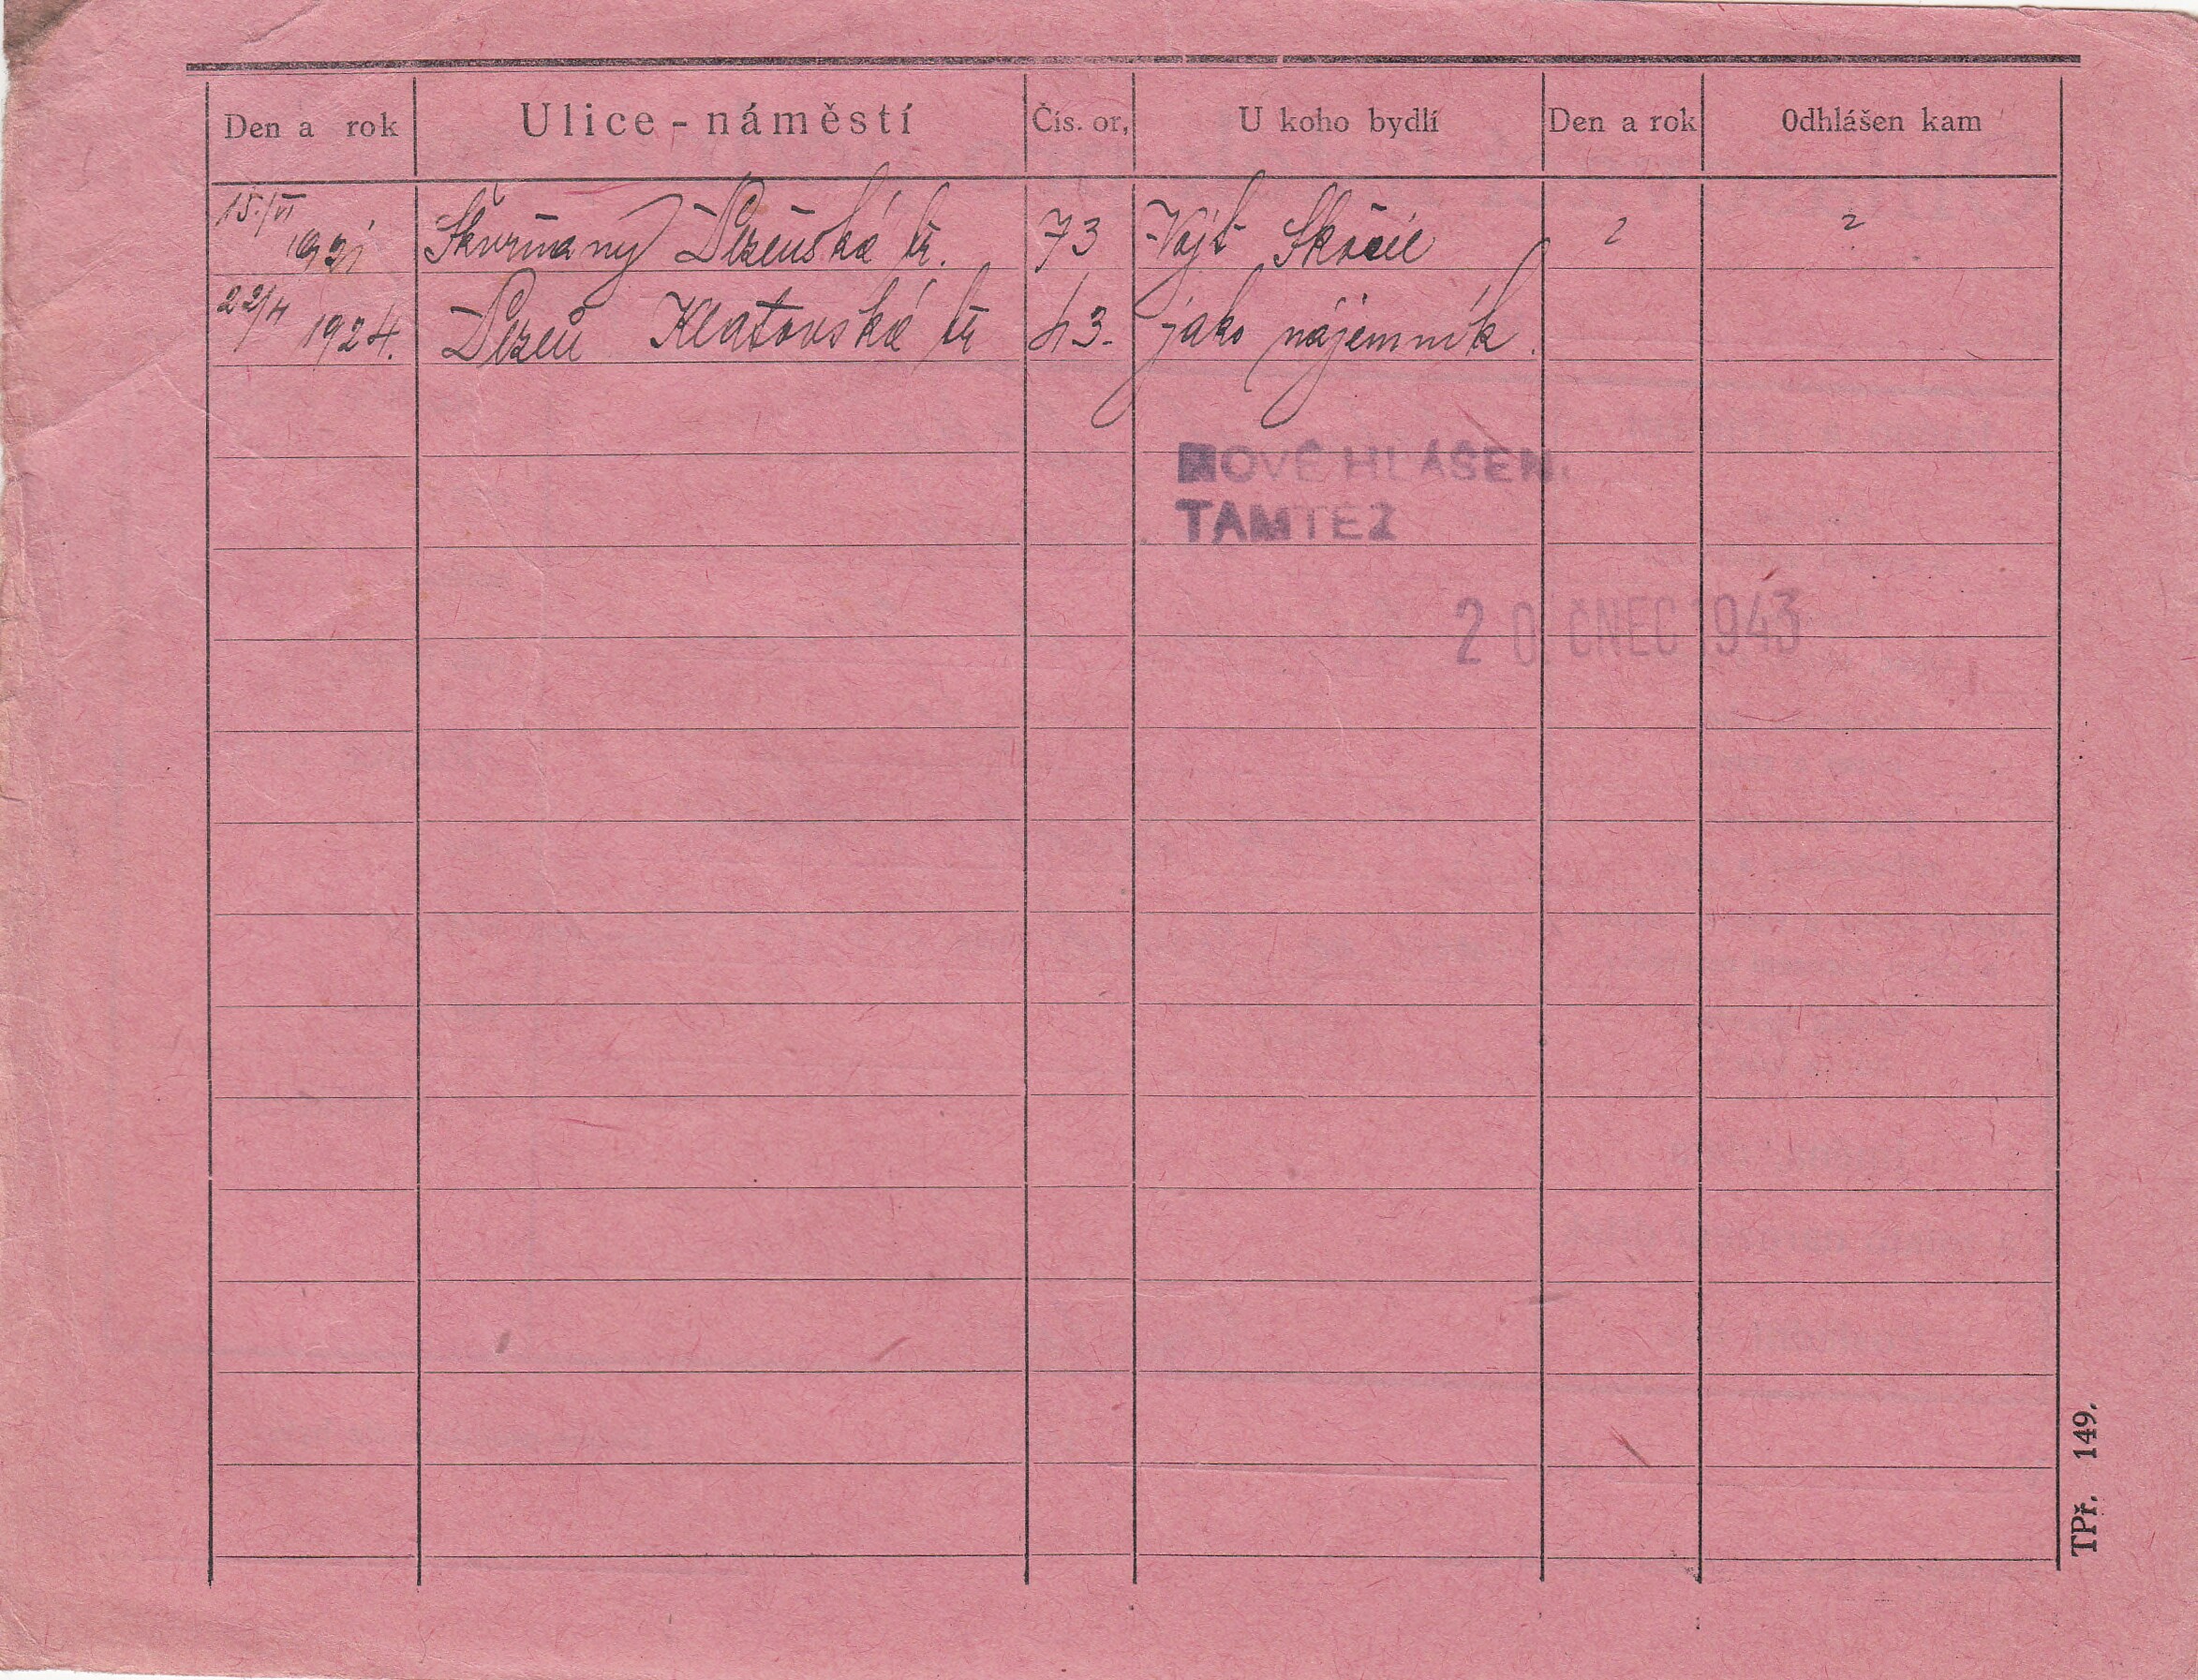 Den a rok Ulice - náměstí Čís. or. U koho bydlí Den a rok Odhlášen kam
15./VI 1921 Škvrňany Plzeňská tř. 73 Vojt ? ?
22/4 1924. Plzeň Klatovská tř 43. jako nájemník.
NOVÉ HLÁŠEN.
TAMTÉŽ
20 ČNEC 1943
TPř. 149.